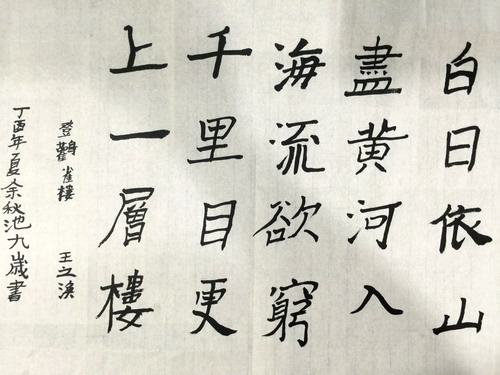 白日依山
盡黄河入
海流欲窮
千里目更
上一層樓
登鸛雀樓 王之渙
丁酉年夏余秋池九歲書